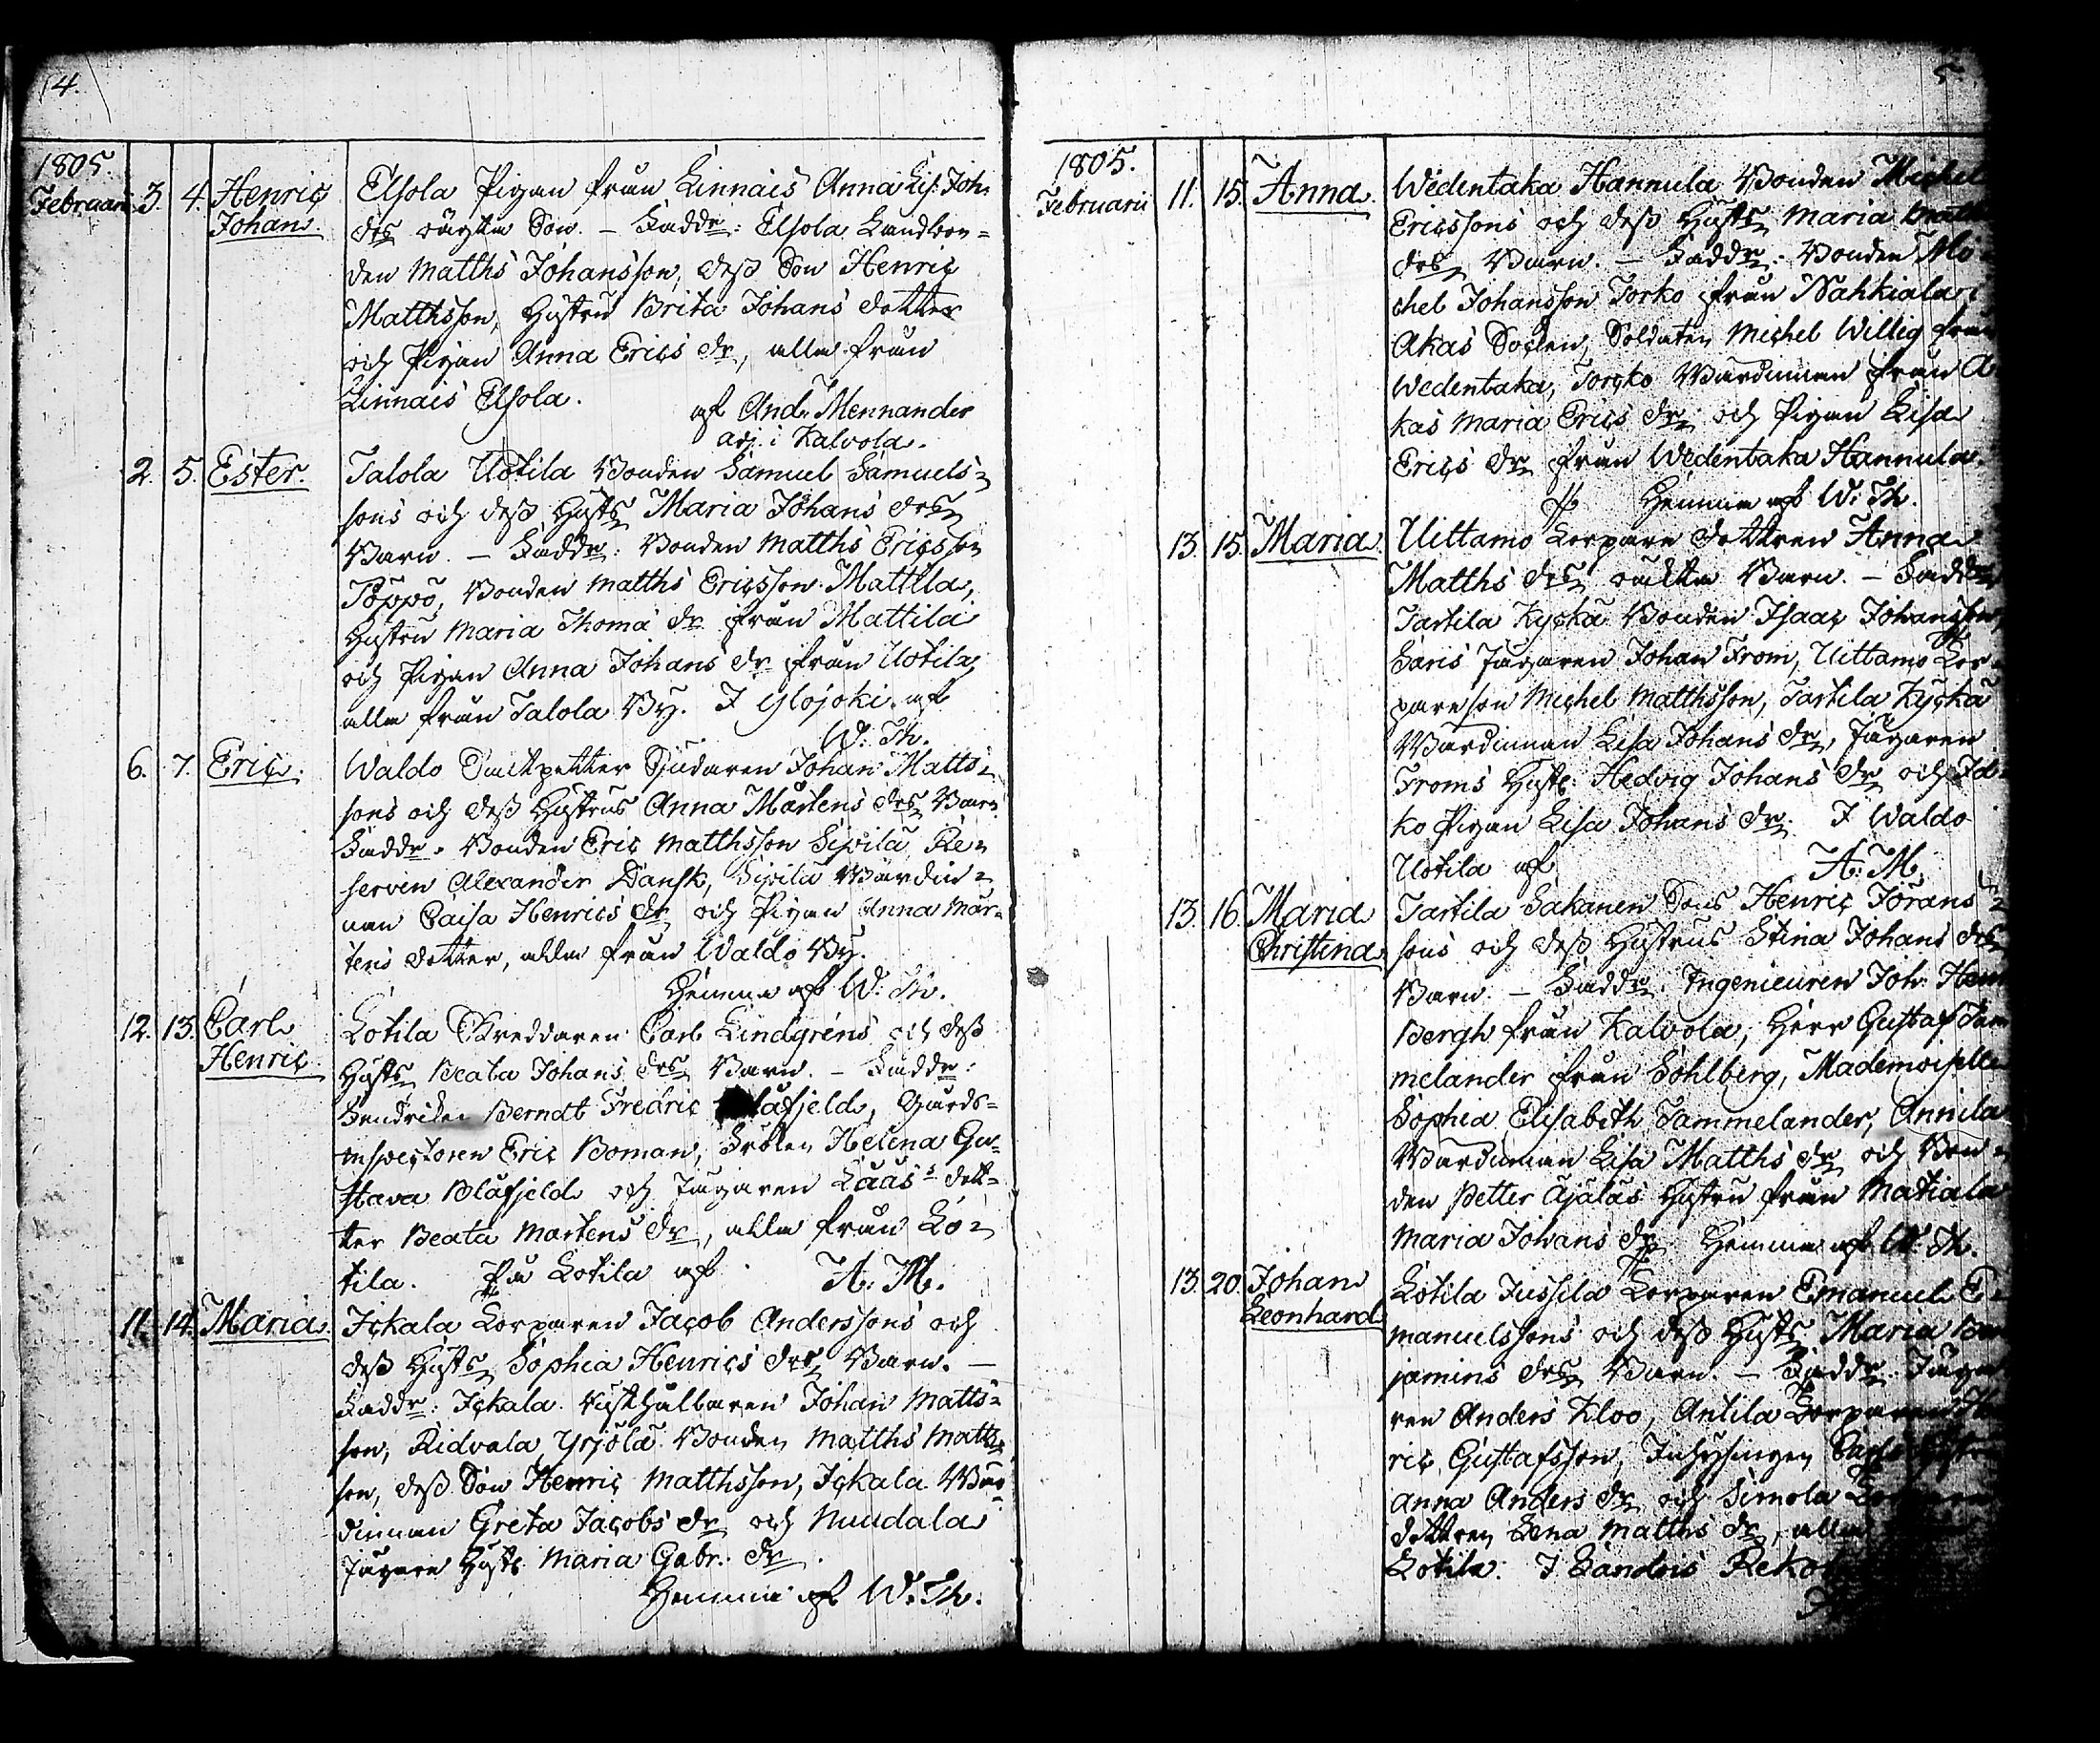 4.
1805.
Februarii 3. 4. Henric Johan.
Elsola Pigan från Linnais Anna Lis. Joh.
drs oägta Son. – Faddr: Elsola Landbon=
den Matths Johansson, dess Son Henric
Matthsson, Hustru Brita Johans dotter
och Pigan Anna Erics dr, alla från
Linnais Elsola.
af And. Mennander
adj. i Kalvola.
2. 5. Ester.
Talola Uotila Bonden Samuel Samuels=
sons och dess Hustrs Maria Johans drs
Barn. – Faddr: Bonden Matths Ericsson
Poppo, Bonden Matths Ericsson Mattila,
Hustru Maria Thoma dr från Mattila
och Pigan Anna Johans dr från Uotila,
alla från Talola By. I Ylöjoki af
W. Th.
6. 7. Eric.
Waldo Sjudaren Johan Matts=
sons och dess Hustrus Anna Mårtens drs Barn
Faddr. Bonden Eric Matthsson Sipilä, Re=
serven Alexander Dansk, Sipilä Wärdin=
nan Caisa Henrics dr och Pigan Anna Mår=
tens dotter, alla från Waldo By.
Hemma af W. Th.
12. 13. Carl Henric
Lotila Skreddaren Carl Lindgrens och dess
Hustrs Beata Johans drs Barn. – Faddr:
Fendriken Berndt Fredric Blåfjeld, Gårds=
inspectoren Eric Boman, Fröken Helena Gu=
stava Blåfjeld och Jägaren Laas's dot=
ter Beata Mårtens dr, alla från Lo=
tila. På Lotila af A. M.
11. 14. Maria
Ickala Torparen Jacob Anderssons och
dess Hustrs Sophia Henrics drs Barn. –
Faddr: Ickala Rusthållaren Johan Matts=
son, Ridvala Yrjölä Bonden Matths Matths
son, dess Son Henric Matthsson, Ickala Wär=
dinnan Greta Jacobs dr och Nuudala
Jägare Hustr Maria Gabr. dr.
Hemma af W. Th.
5.
1805.
Februarii 11. 15. Anna.
Wedentaka Hannula Bonden Michel
Ericssons och dess Hustrs Maria Matths
drs Barn. – Faddr: Bonden Mi=
chel Johansson Torko från Nahkiala i
Akas Socken, Soldaten Michel Willig från
Wedentaka, Torcko Wärdinnan från A=
kas Maria Erics dr och Pigan Lisa
Erics dr från Wedentaka Hannula.
Hemma af W. Th.
13. 15. Maria
Uittamo Torpare dottren Anna
Matths drs oäkta Barn. – Faddr
Tartila Kyckä Bonden Isaac Johansson,
Saris Jägaren Johan From, Uittamo Tor=
pareson Michel Matthsson, Tartila Kyckä
Wärdinnan Lisa Johans dr, Jägaren
Froms Hustr. Hedvig Johans dr och
ko Pigan Lisa Johans dr. I Waldo
Uotila af A. M.
13. 16. Maria Christina
Tartila Sakanen Sons Henric Jörans=
sons och dess Hustrus Stina Johans drs
Barn. – Faddr. Ingenieuren Joh. Henr
Bergh från Kalvola, Herr Gustaf Tam
melander från Sohlberg, Mademoiselle
Sophia Elisabeth Tammelander, Annila
Wärdinnan Lisa Matths dr och Bon=
den Petter Äjäläs Hustru från Matiala
Maria Johans dr. Hemma af W. Th.
13. 20. Johan Leonhard
Lotila Jussila Torparen Emanuel E=
manuelssons och dess Hustrs Maria Ben
jamins drs Barn. – Faddr. Jäga
ren Anders Kloo, Antila Torparen Hen
ric Gustafsson, Inhysingen
Anna Anders dr och Simola
dottren Lena Matths dr, alla
Lotila. I Sandois Reko